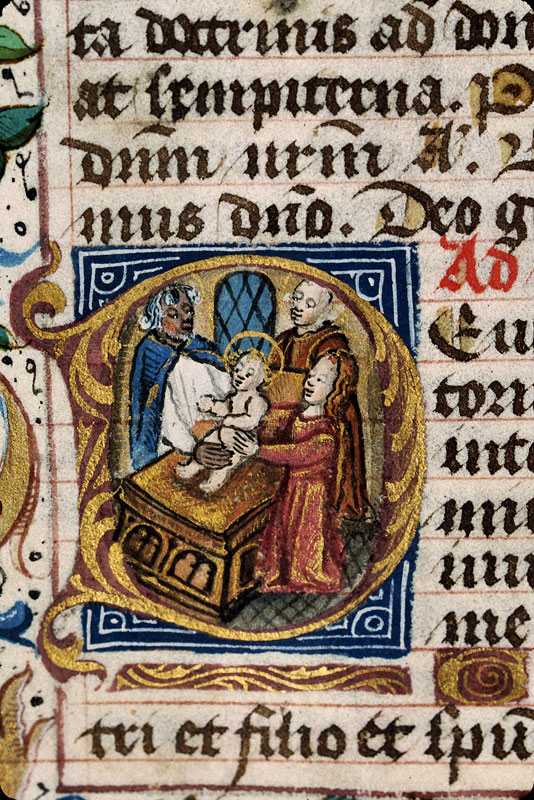 ta doctrinis ad don
at sempiterna. P
dn̄m nr̄m A. 
mus dn̄o. Deo g
Ad
Eu
torn
inte
me
tri et filio et spū